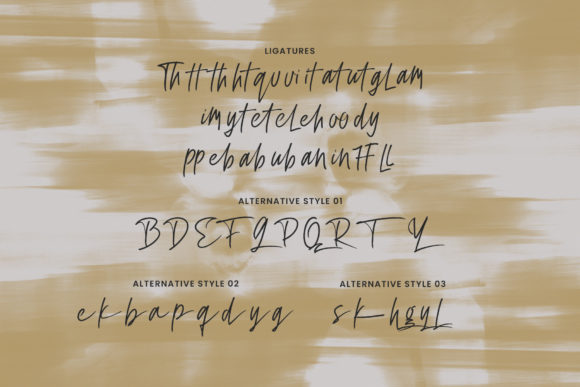 LIGATURES
Th tt th ht qu vi it at ut gl am
im yt et el eh oo dy
pp eb ab ub an in ff ll
ALTERNATIVE STYLE 01
B D E F G P Q R T Y
ALTERNATIVE STYLE 02
e k b a p q d y g
ALTERNATIVE STYLE 03
s k h g y L